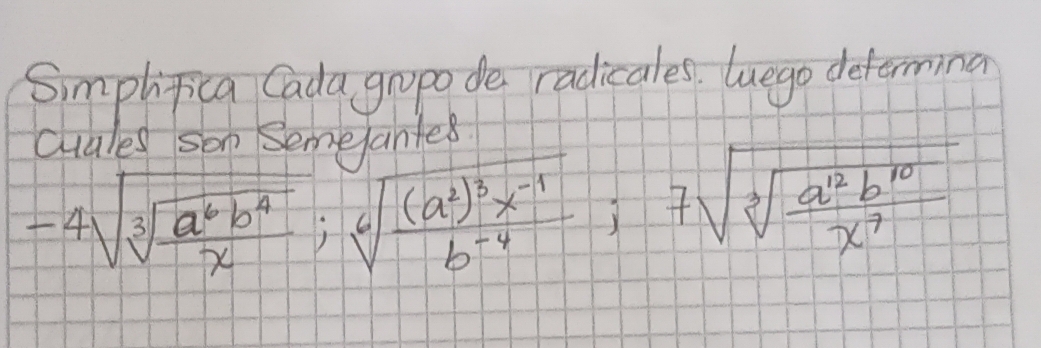 Simplifica Cada grupo de radicales. luego determina
cuales son Semejantes.
-4√∛(a⁶b⁴/x) ; ⁶√((a²)³x⁻¹/b⁻⁴) ; 7√∛(a¹²b¹⁰/x⁷)